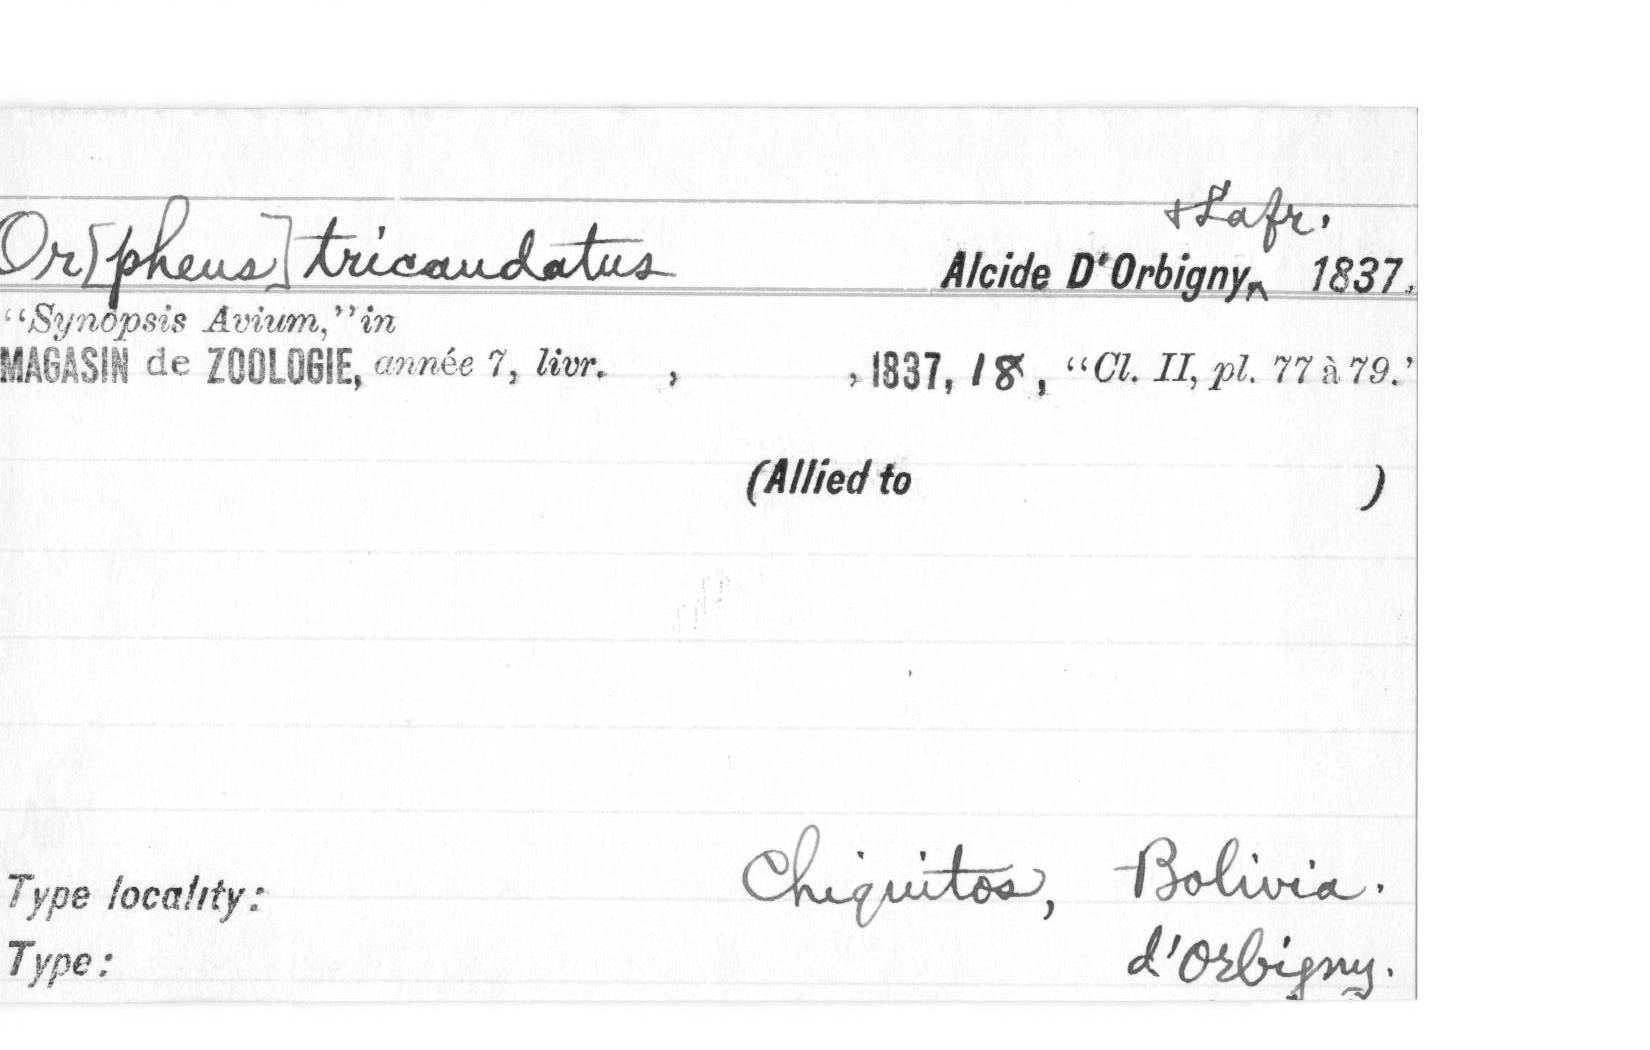 + Lafr.
Or[pheus] tricaudatus Alcide D'Orbigny^ 1837.
“Synopsis Avium,” in
MAGASIN de ZOOLOGIE, année 7, livr. , , 1837, 18, “Cl. II, pl. 77 à 79.’
(Allied to )
Type locality: Chiquitos, Bolivia.
Type: d'Orbigny.